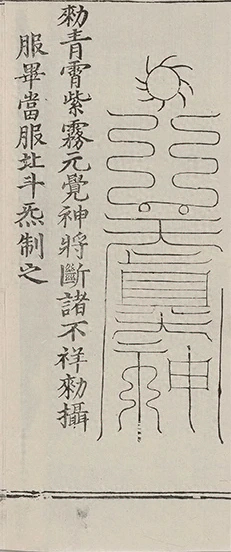 勑青霄紫霧元覺神將斷諸不祥勑攝
服畢當服北斗炁制之